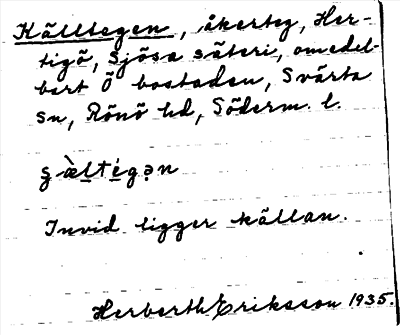 Källtegen, åkerteg, Her-
tigö, Sjösa säteri, omedel-
bart Ö bostaden, Svärta
sn, Rönö hd, Söderm. l.
Invid ligger källan.
Herberth Eriksson 1935.